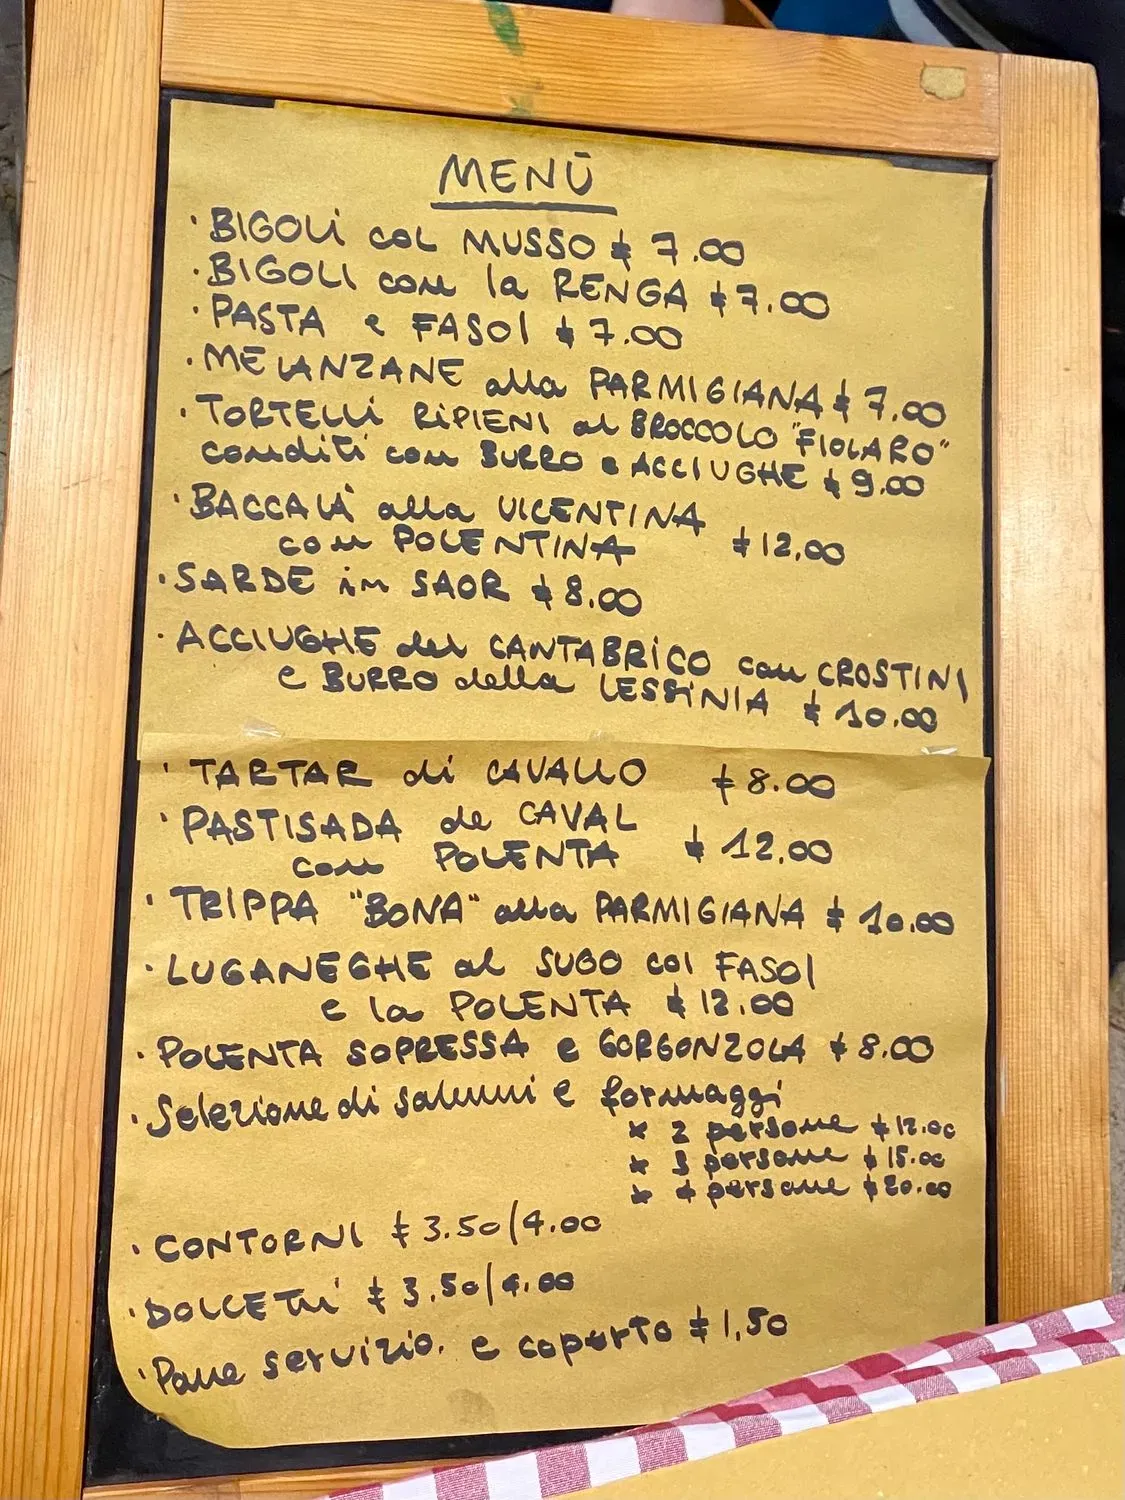 MENÙ
· BIGOLI COL MUSSO € 7.00
· BIGOLI con la RENGA € 7.00
· PASTA e FASOI € 7.00
· MELANZANE alla PARMIGIANA € 7.00
· TORTELLI RIPIENI al BROCCOLO "FIOLARO"
conditi con BURRO e ACCIUGHE € 9.00
· BACCALÀ alla VICENTINA
con POLENTINA € 12,00
· SARDE in SAOR € 8.00
· ACCIUGHE del CANTABRICO con CROSTINI
e BURRO della LESSINIA € 10.00
· TARTAR di CAVALLO € 8.00
· PASTISADA de CAVAL
con POLENTA € 12,00
· TRIPPA "BONA" alla PARMIGIANA € 10.00
· LUGANEGHE al SUGO col FASOI
e la POLENTA € 12.00
· POLENTA SOPRESSA e GORGONZOLA € 8.00
· Selezione di salumi e formaggi
x 2 persone € 12.00
x 3 persone € 15.00
x 4 persone € 20.00
· CONTORNI € 3.50/4.00
· DOLCETTI € 3.50/4.00
· Pane servizio. e coperto € 1,50